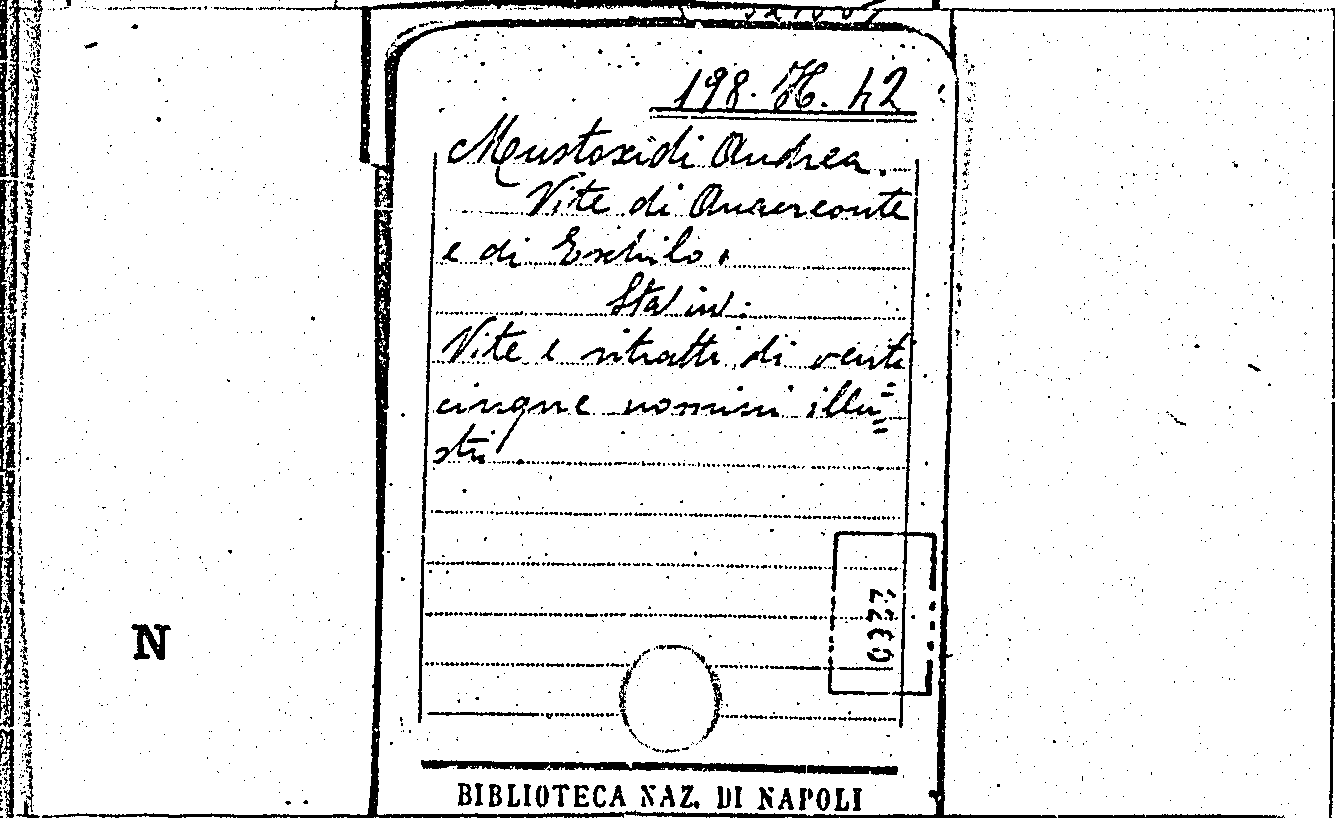 198. H. 42
Mustoxidi Andrea.
Vite di Anacreonte
e di Eschilo.
Sta in:
Vite e ritratti di venti
cinque uomini illu=
stri.
N
BIBLIOTECA NAZ. DI NAPOLI